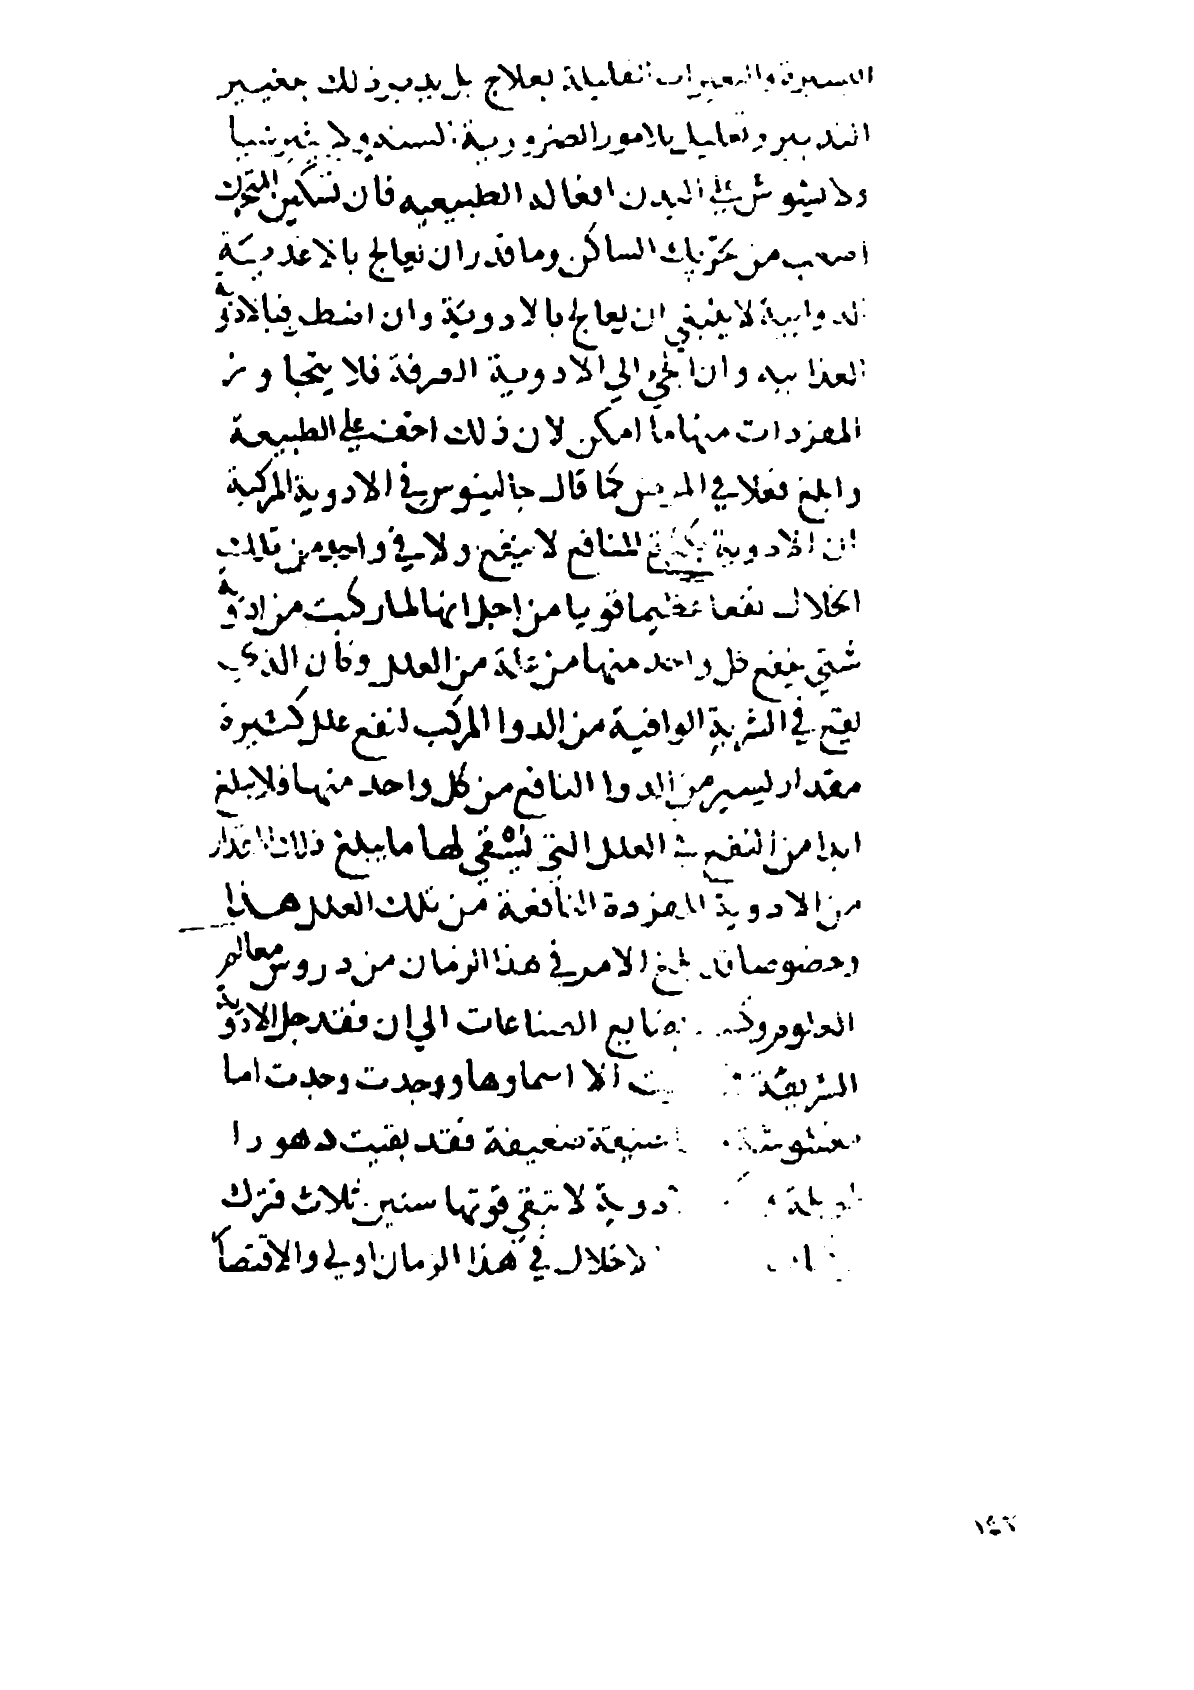 اليسيرة والتغيرات القليلة بعلاج بل يدبر ذلك بتغيير
التدبير وتعليل بالامور الضرورية الستة ولا يثير شيا
ولا يشوش على البدن افعاله الطبيعيه فان تسكين المتحرك
اصعب من تحريك الساكن وما قدر ان يعالج بالاغدية
الدوايية لا ينبغي ان يعالج بالادوية وان اضطر فبالادوية
الغذاييه وان الجي الي الادوية الصرفة فلا يتجاوز
المفردات منها ما امكن لان ذلك اخف علي الطبيعة
وابلغ فعلا في المرض كما قال جالينوس في الادوية المركبة
ان الادوية المنافع لا ينفع ولا في واحد من تلك
الخلال نفعا عظيما قويا من اجل انها لما ركبت من ادوية
شتي ينفع كل واحد منها من علة من العلل وكان الذي
يقع في الشربة الوافية من الدوا المركب لنفع علل كثيرة
مقدار ليسير من الدوا النافع من كل واحد منها فلا يبلغ
ابدا من النفع في العلل التي يسقي لها ما يبلغ ذلك المقدار
من الادوية المفردة النافعة من تلك العلل هذا
وخصوصا قد بلغ الامر في هذا الزمان من دروس معالم
العلوم صنايع الصناعات الي ان فقد جل الادوية
الشريفة الا اسماوها ووجدت وجدت اما
مغشوشة ضعيفة فقد بقيت دهورا
ادوية لا تبقي قوتها سنين ثلاث فترك
الاخلال في هذا الزمان اولي والاقتصا
١٤٦